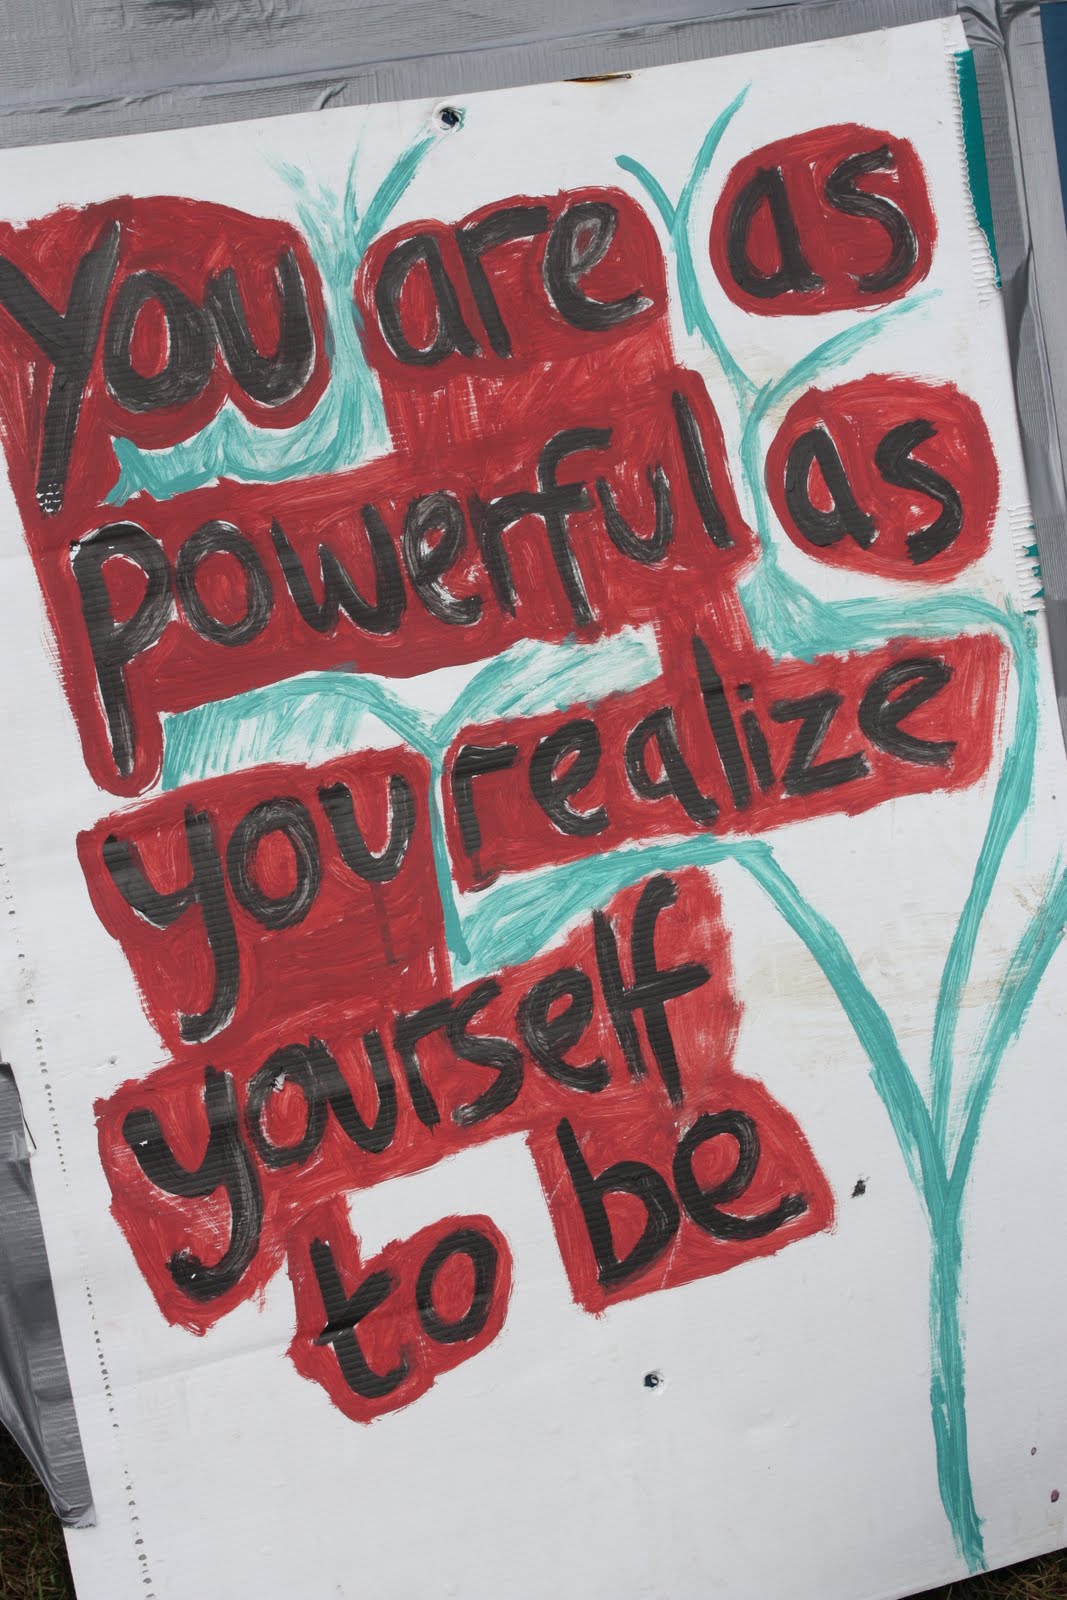 You are as
powerful as
you realize
yourself
to be